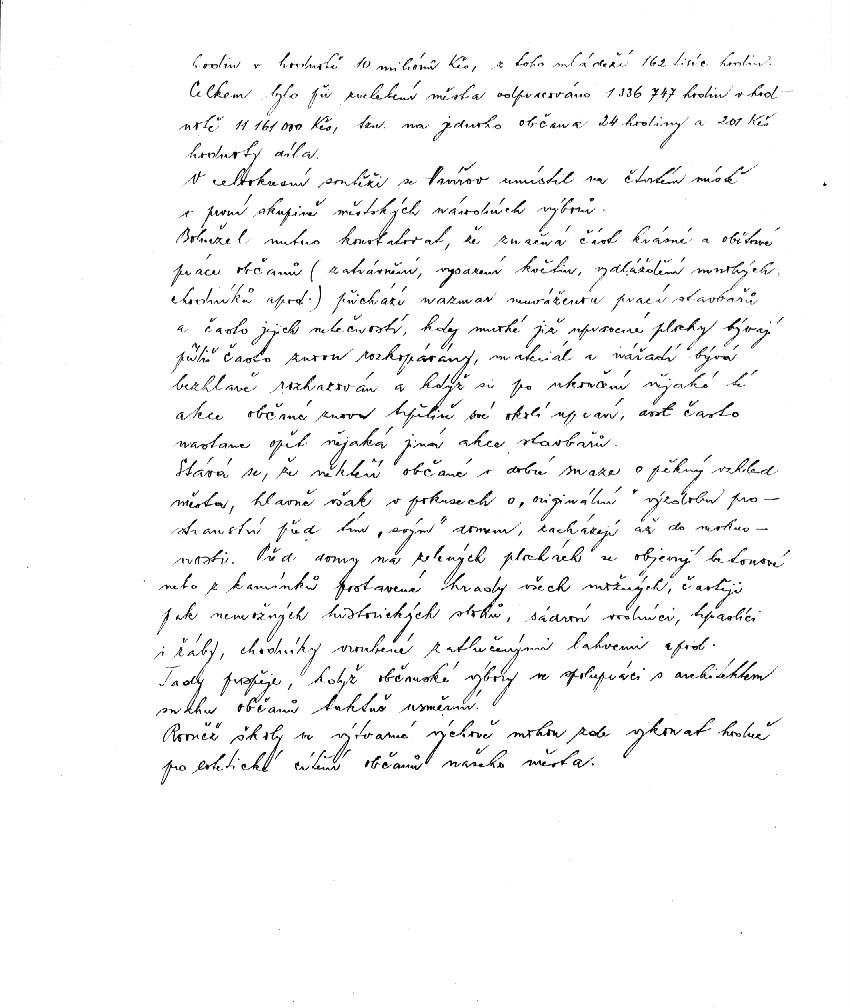 hodin v hodnotě 10 miliónů Kčs, z toho mládeží 162 tisíc hodin.
Celkem bylo při zvelebení města odpracováno 1 336 747 hodin v hod-
notě 11 161 000 Kčs, tzn. na jednoho občana 24 hodiny a 201 Kčs
hodnoty díla.
V celookresní soutěži se umístil na čtvrtém místě
v první skupině městských národních výborů.
Bohužel nutno konstatovat, že značná část krásné a obětavé
práce občanů (zatrávnění, vysazení květin, vydláždění mnohých
chodníků apod.) přichází nazmar neuváženou prací stavbařů
a často jejich netečností, kdy mnohé již upravené plochy bývají
příliš často znovu rozkopávány, materiál a nářadí bývá
bezhlavě rozhazován a když si po ukončení nějaké té
akce občané znovu trpělivě své okolí upraví, dost často
nastane opět nějaká jiná akce stavbařů.
Stává se, že někteří občané v dobré snaze o pěkný vzhled
města, hlavně však v pokusech o „originální" výzdobu pro-
stranství před tím „svým" domem, zacházejí až do nevkus-
nosti. Před domy na zelených plochách se objevují betonové
nebo z kamínků postavené hrady všech možných, častěji
pak nemožných historických slohů, sádroví vodníci, trpaslíci
i žáby, chodníky vroubené zatlučenými lahvemi apod.
Tady prospěje, když občanské výbory ve spolupráci s architektem
snahu občanů taktně usměrní.
Rovněž školy ve výtvarné výchově mohou zde vykonat hodně
pro estetické cítění občanů našeho města.